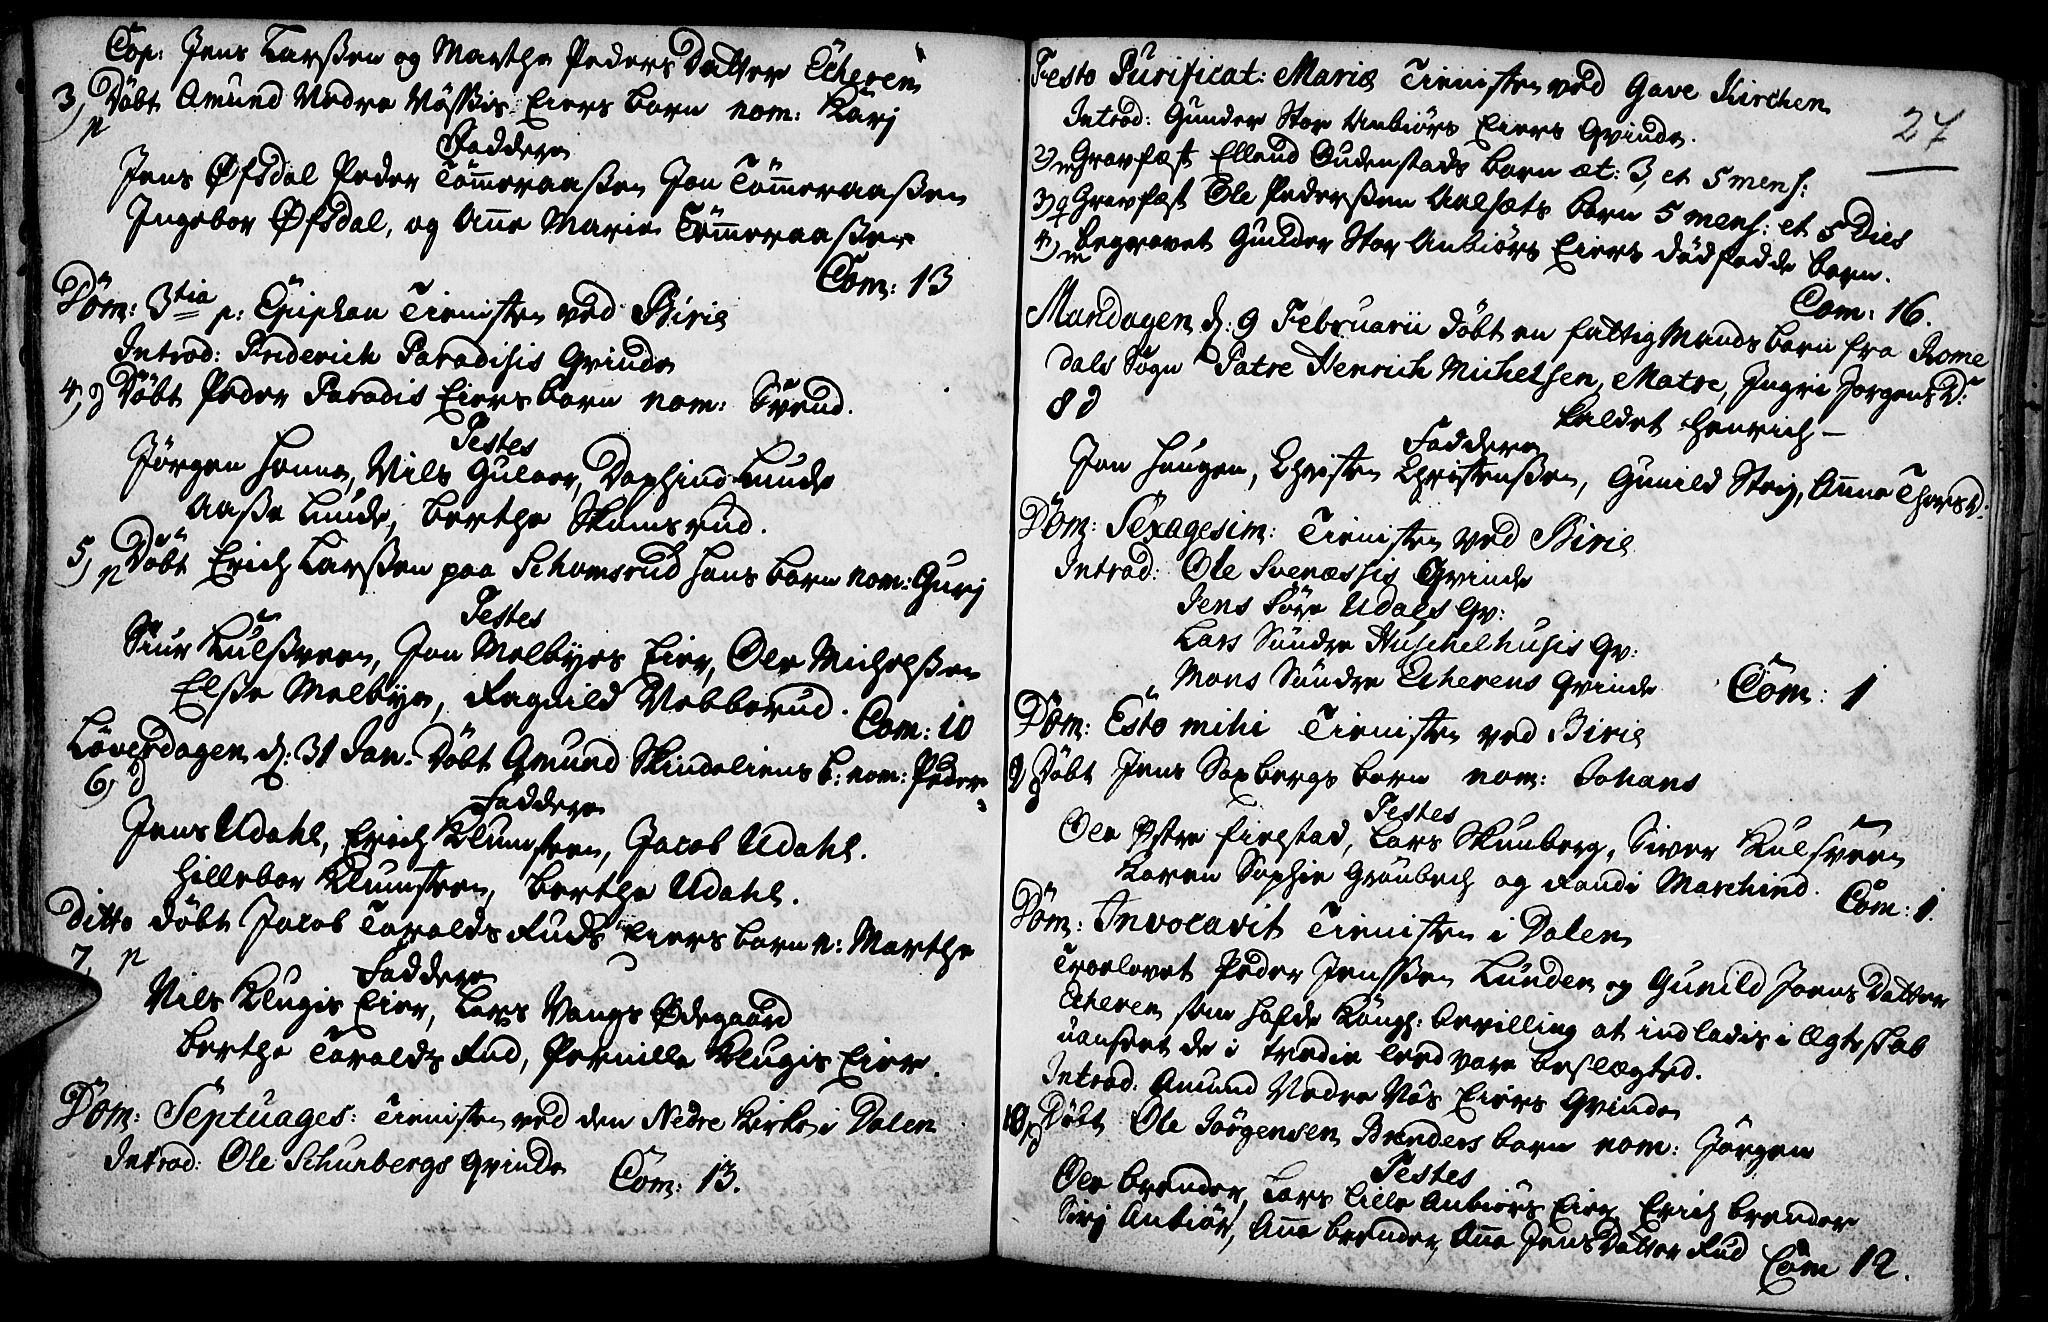 Cop: Jens Larßen og Marthe Peders Datter Echeren
3, Døbt Amund Nedre Vössis Eiers barn nom: Karj
p Faddere
Jens Øfsdal Peder Tömmeraaßen Jon Tömmeraaßen
Ingebor Øfsdal, og Anne Marie Tömmeraaßen
Com: 13
Dom: 3tia p: Epiphan Tienisten ved Birie
Introd: Friderich Paradisis Qvinde
4, d Døbt Peder Paradis Eiers barn nom: Svend.
Testes
Jørgen Honne, Nils Gulaar, Daphind Lunde
Aaße Lunde, Berthe Skumsrud.
5, p Døbt Erich Larßen paa Schomsrud hans barn nom: Gurj
Testes
Siur Kulßveen, Jon Melbyes Eier, Ole Michelßen
Elße Melbye, Ragnild Vebberud.
Com: 10
Løverdagen d: 31 Jan. Døbt Amund Skindeliens b: nom: Peder
6, d Faddere
Jens Udahl, Erich Klumsteen, Jacob Udahl.
Hillebor Klumsteen, Berthe Udahl.
Ditto Døbt Jacob Taralds Ruds Eiers barn n: Marthe
7, p Faddere
Nils Klugis Eier, Lars Vangs Ødegaard
Berthe Taralds Rud, Pernille Klugis Eier.
Dom: Septuages: Tienisten ved den Nedre Kirke i Dalen
Introd: Ole Schunbergs Qvinde
Com: 13.
27
Festo Purificat: Mariæ Tienisten ved Gave Kirchen
Introd: Gunder Stor Anbiörs Eiers Qvinde.
2, m Gravfæst Ellend Audenstads barn æt: 3, et 5 mens:
3, q Gravfæst Ole Pederßen Aalsæts barn 5 mens: et 5 Dies
4, m begravet Gunder Stor Anbiörs Eiers dødfødde barn.
Com: 16.
Mandagen d: 9 Februarii Døbt en fattig Mands barn fra Rome
dals Sogn Patre Henrich Michelsen, Matre, Ingri Jorgens D:
8 d kaldet Henrich -
Faddere
Jon Haugen, Christen Christenßen, Gunild Steig, Anne Thorsd:
Dom: Sexagesim: Tienisten ved Birie
Introd: Ole Svenæssis Qvinde
Jens Söre Udals Qv:
Lars Sündre Huschelhusis Qv:
Mons Sündre Echerens Qvinde
Com: 1
Dom: Esto mihi Tienisten ved Birie
9, d Döbt Jens Saxbergs barn nom: Johans
Testes
Ole Østre Firlstad, Lars Skunberg, Siver Kulsveen
Karen Sophie Grönbech og Randi Marchind.
Com: 1.
Dom: Invocavit Tienisten i Dalen
Troelovet Peder Jensßen Lunden og Gunild Joens Datter
Echeren som hafde Kongl: bevilling at indladis i Ægteskab
uanseet de i tredie leed vare beslægted.
Introd: Amund Nedre Vös Eiers Qvinde
10, d Döbt Ole Jörgensen Brenders barn nom: Jörgen
Testes
Ole Brender, Lars Lille Anbiörs Eier, Erich Brender
Sirj Anbiör, Anne Brender, Anne Jens Datter Rud
Com 12.